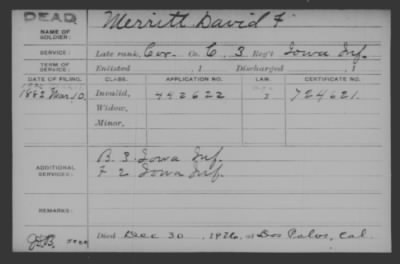 DEAD
NAME OF SOLDIER: Merritt David F
SERVICE: Late rank, Cor. Co. C, 3 Reg't Iowa Inf.
TERM OF SERVICE: Enlisted , 1 Discharged , 1
DATE OF FILING. CLASS. APPLICATION NO. LAW. CERTIFICATE NO.
1882 Mar 10. Invalid, 442622 724621.
Widow,
Minor,
ADDITIONAL SERVICES: B. 3. Iowa Inf.
F 2 Iowa Inf.
REMARKS:
Died Dec 30, 1926, at Dos Palos, Cal.